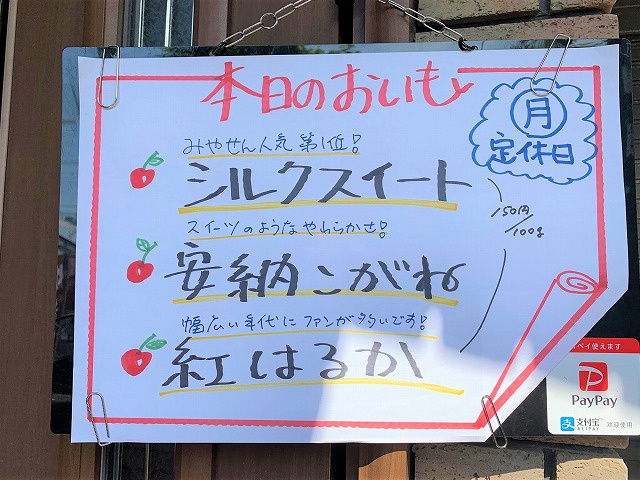 本日のおいも
月
定休日
みやせん人気第1位!
シルクスイート
スイーツのようなやわらかさ!
安納こがね
幅広い年代にファンが多いです!
紅はるか
150円/100g
ペイ使えます
PayPay
支付宝
ALIPAY
欢迎使用